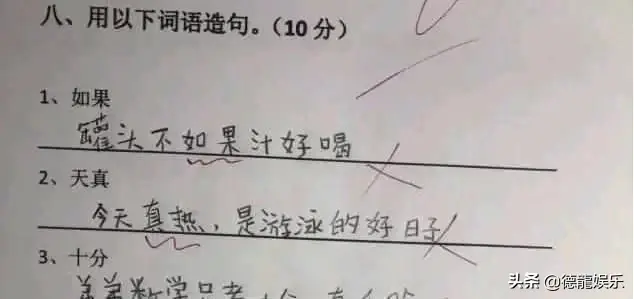 八、用以下词语造句。(10 分)
1、如果
罐头不如果汁好喝
2、天真
今天真热，是游泳的好日子
3、十分
弟弟数学只考十分，真
头条 @德龍娱乐